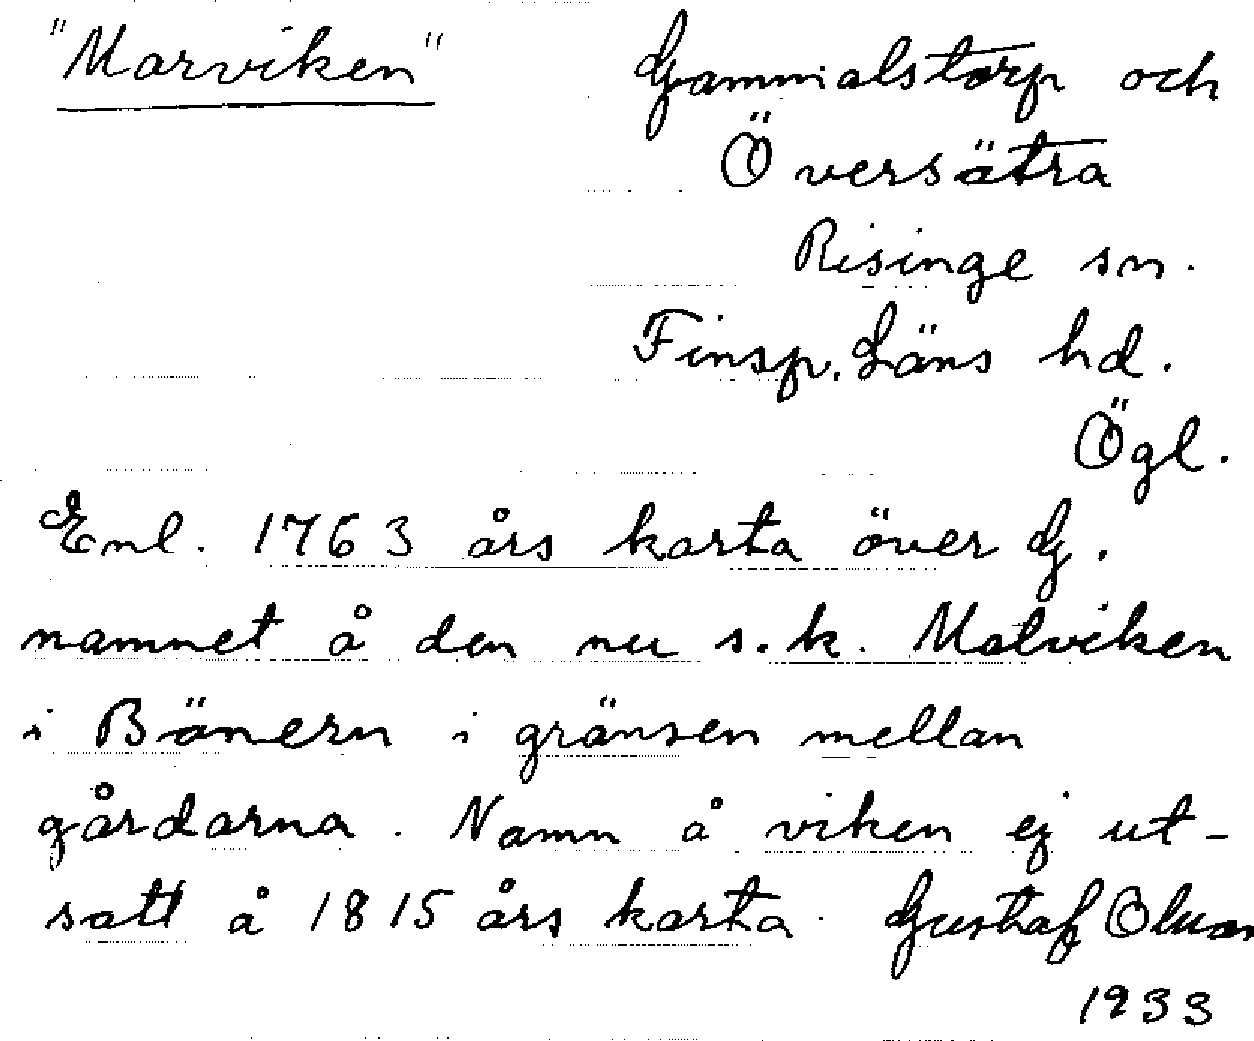 "Marviken"
Gammalstorp och
Översätra
Risinge sn.
Finsp. Läns hd.
Ögl.
Enl. 1763 års karta över G.
namnet å den nu s.k. Malviken
i Bönern i gränsen mellan
gårdarna. Namn å viken ej ut-
satt å 1815 års karta. Gustaf Olsson
1933